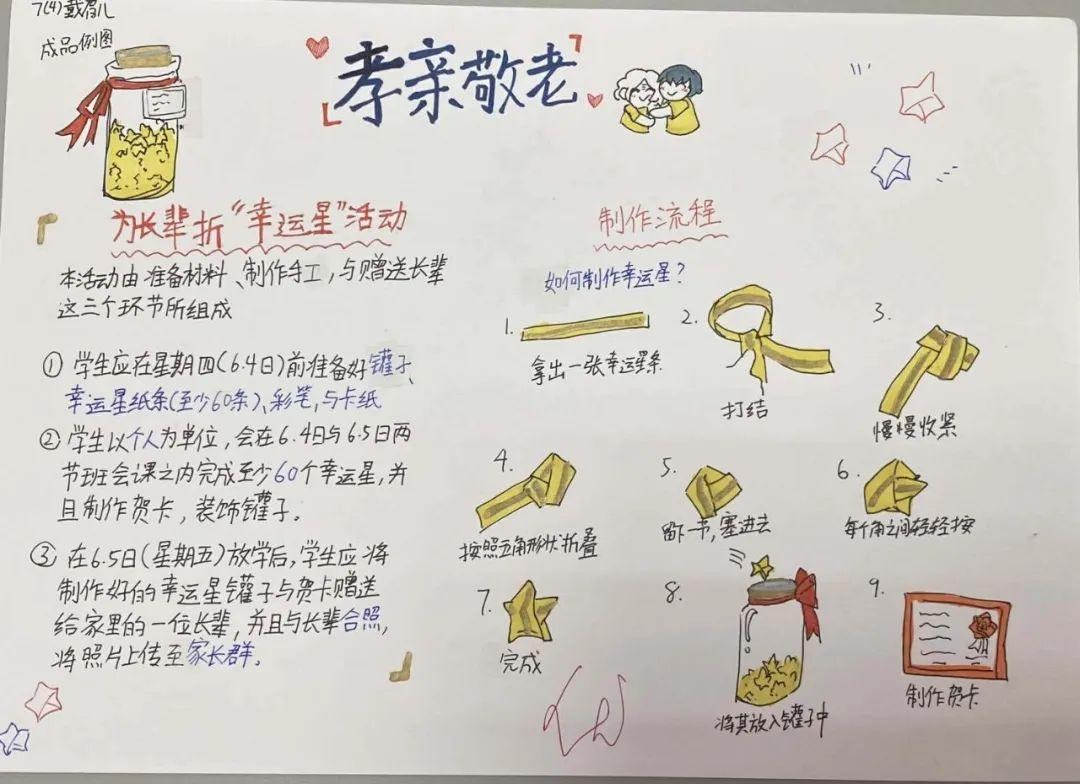 7(4)戴
成品例图
孝亲敬老
为长辈折“幸运星”活动
本活动由准备材料、制作手工,与赠送长辈
这三个环节所组成
① 学生应在星期四(6.4日)前准备好罐子、
幸运星纸条(至少60条)、彩笔,与卡纸
② 学生以个人为单位,会在6.4日与6.5日两
节班会课之内完成至少60个幸运星,并
且制作贺卡,装饰罐子。
③ 在6.5日(星期五)放学后,学生应将
制作好的幸运星罐子与贺卡赠送
给家里的一位长辈,并且与长辈合照,
将照片上传至家长群。
制作流程
如何制作幸运星?
1.
拿出一张幸运星条
2.
打结
3.
慢慢收紧
4.
按照五角形状折叠
5.
留下一节,塞进去
6.
每个角之间轻轻按
7.
完成
8.
将其放入罐子中
9.
制作贺卡